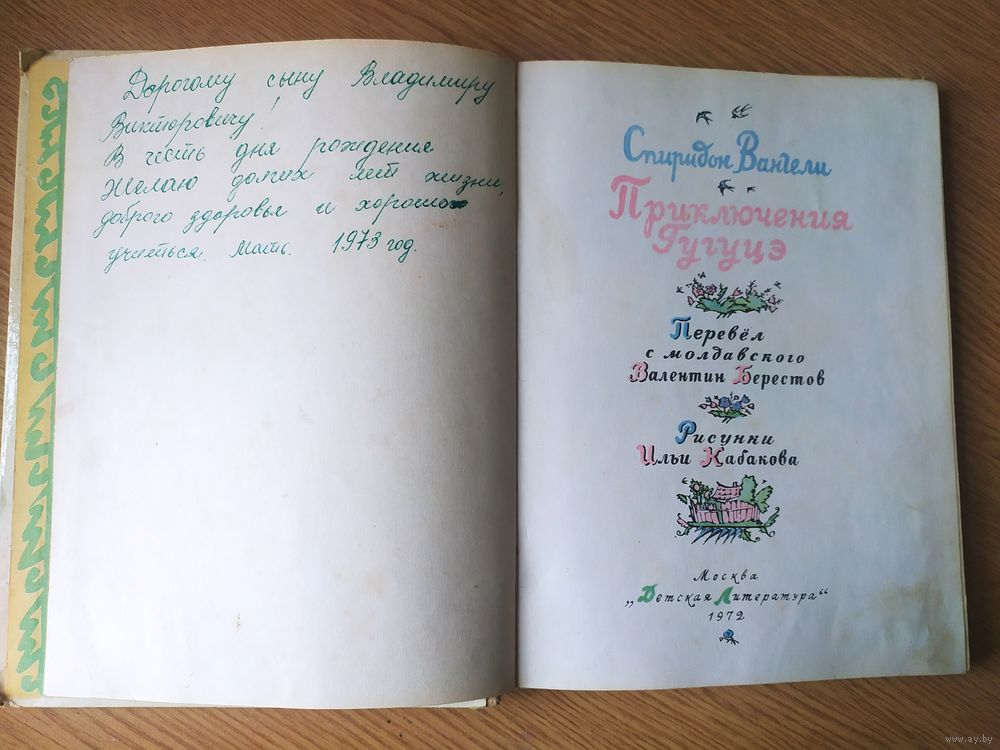 Дорогому сыну Владимиру
Викторовичу!
В честь дня рождения
Желаю долгих лет жизни,
доброго здоровья и хорошо
учиться. Мать. 1973 год.
Спиридон Вангели
Приключения
Гугуцэ
Перевёл
с молдавского
Валентин Берестов
Рисунки
Ильи Кабакова
Москва
„Детская Литература“
1972
www.ay.by